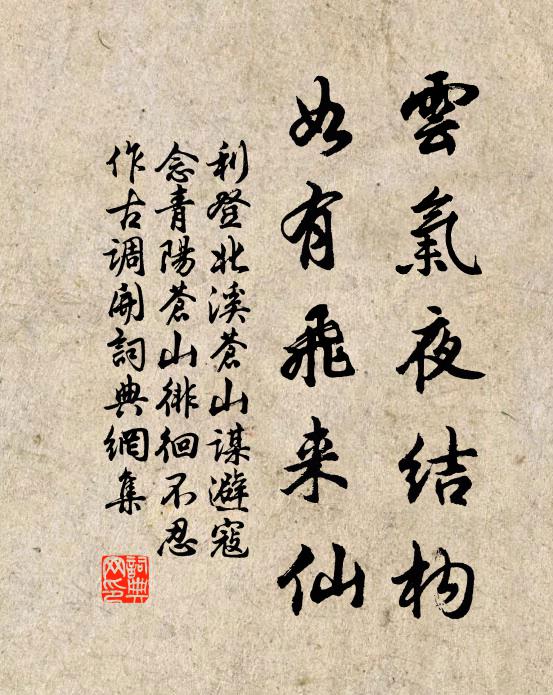 雲氣夜结构
如有飛来仙
利登北溪蒼山謀避寇
念青陽蒼山徘徊不忍
作古調開詞典網集
詞典網印